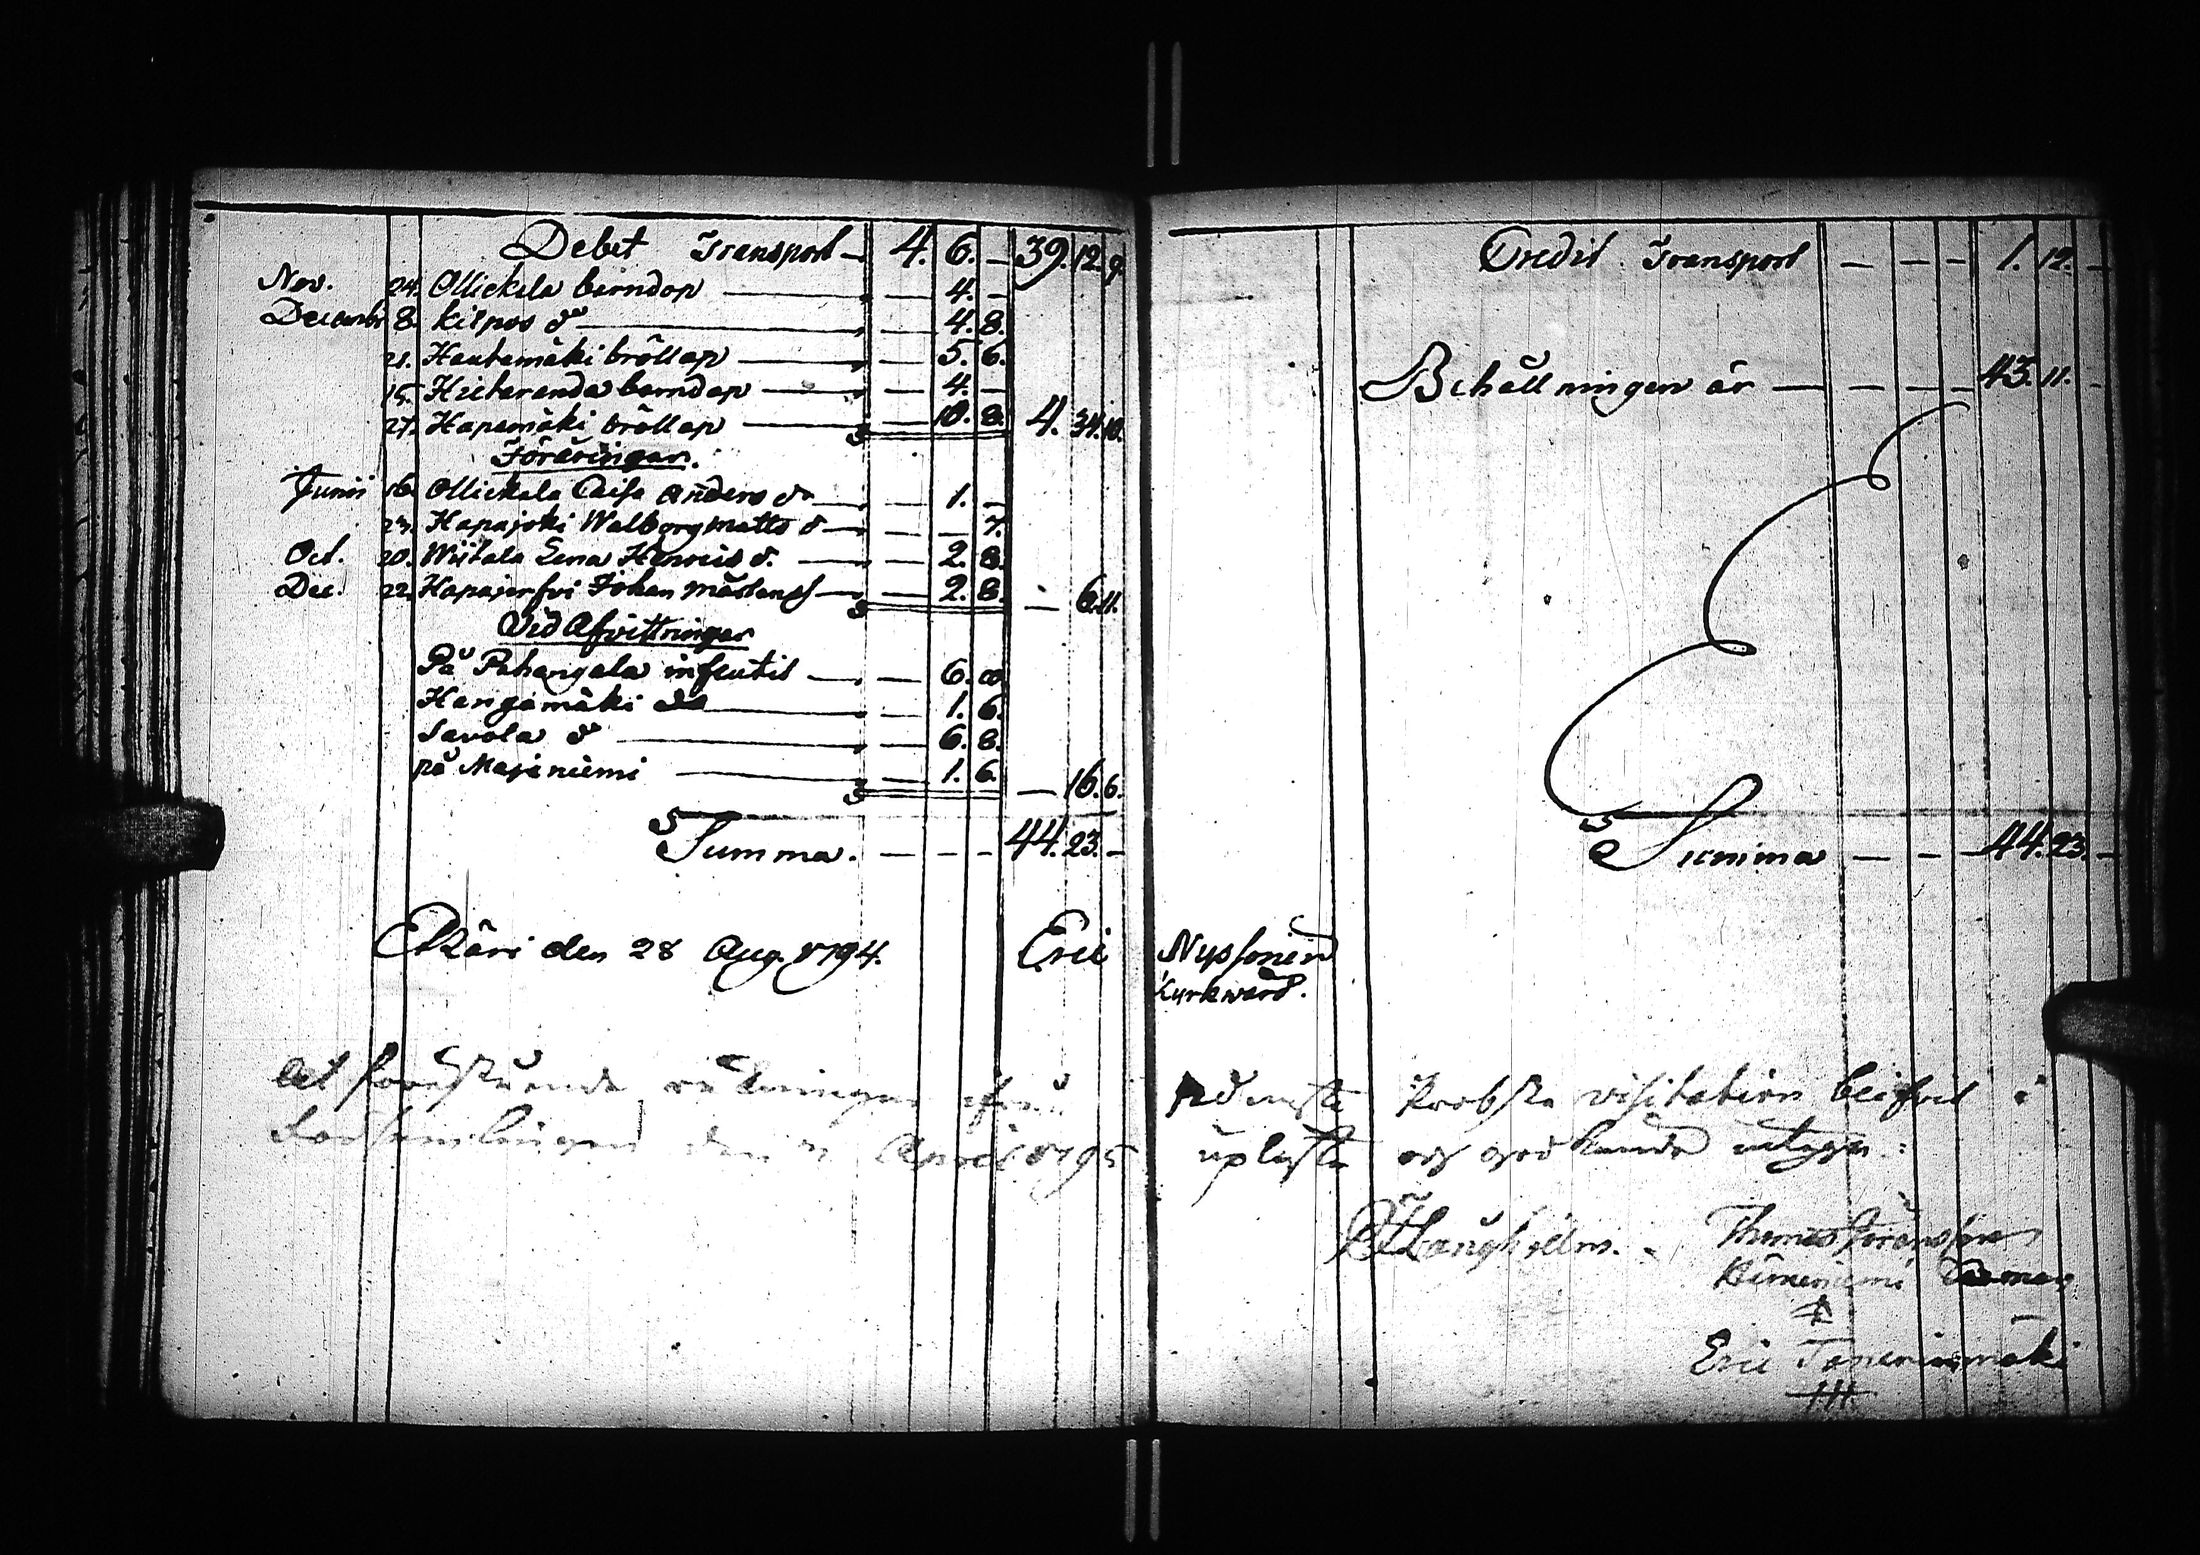 Debet Transport 4. 6. — 39. 12. 9.
Nov. 24. Ollickala barndop — 4. —
Decembr 8. Kilpos do — 4. 8.
21. Hautamäki bröllop — 5. 6.
15. Hietaranda barndop — 4. —
27. Hapamäki bröllop — 10. 8. 4. 34. 10.
Föräringar.
Junii 16. Ollickala Caisa Anders dr — 1. —
23. Hapajoki Walborg Matts d — — 7.
Oct. 20. Wiitala Lena Henrics d. — 2. 8.
Dec. 22. Johan Mårtenss — 2. 8. — 6. 11.
Vid Afvittringar
På Pahangala — 6. 8.
Hangamäki do — 1. 6.
Savola do — 6. 8.
på Majaniemi — 1. 6. — 16. 6.
Summa. — — — 44. 23. —
Etzäri den 28 Aug. 1794. Eric
Credit Transport — — — 1. 12. —
Behållningen är — — — — 43. 11. —
Summa — — — 44. 23. —
Nyssonen
Kyrkward.
At förestående räkningar Probsts visitation i
Församlingen den April 1795 uplyste och godkände intyga:
Långhielm. Thomas Göransson
Eric